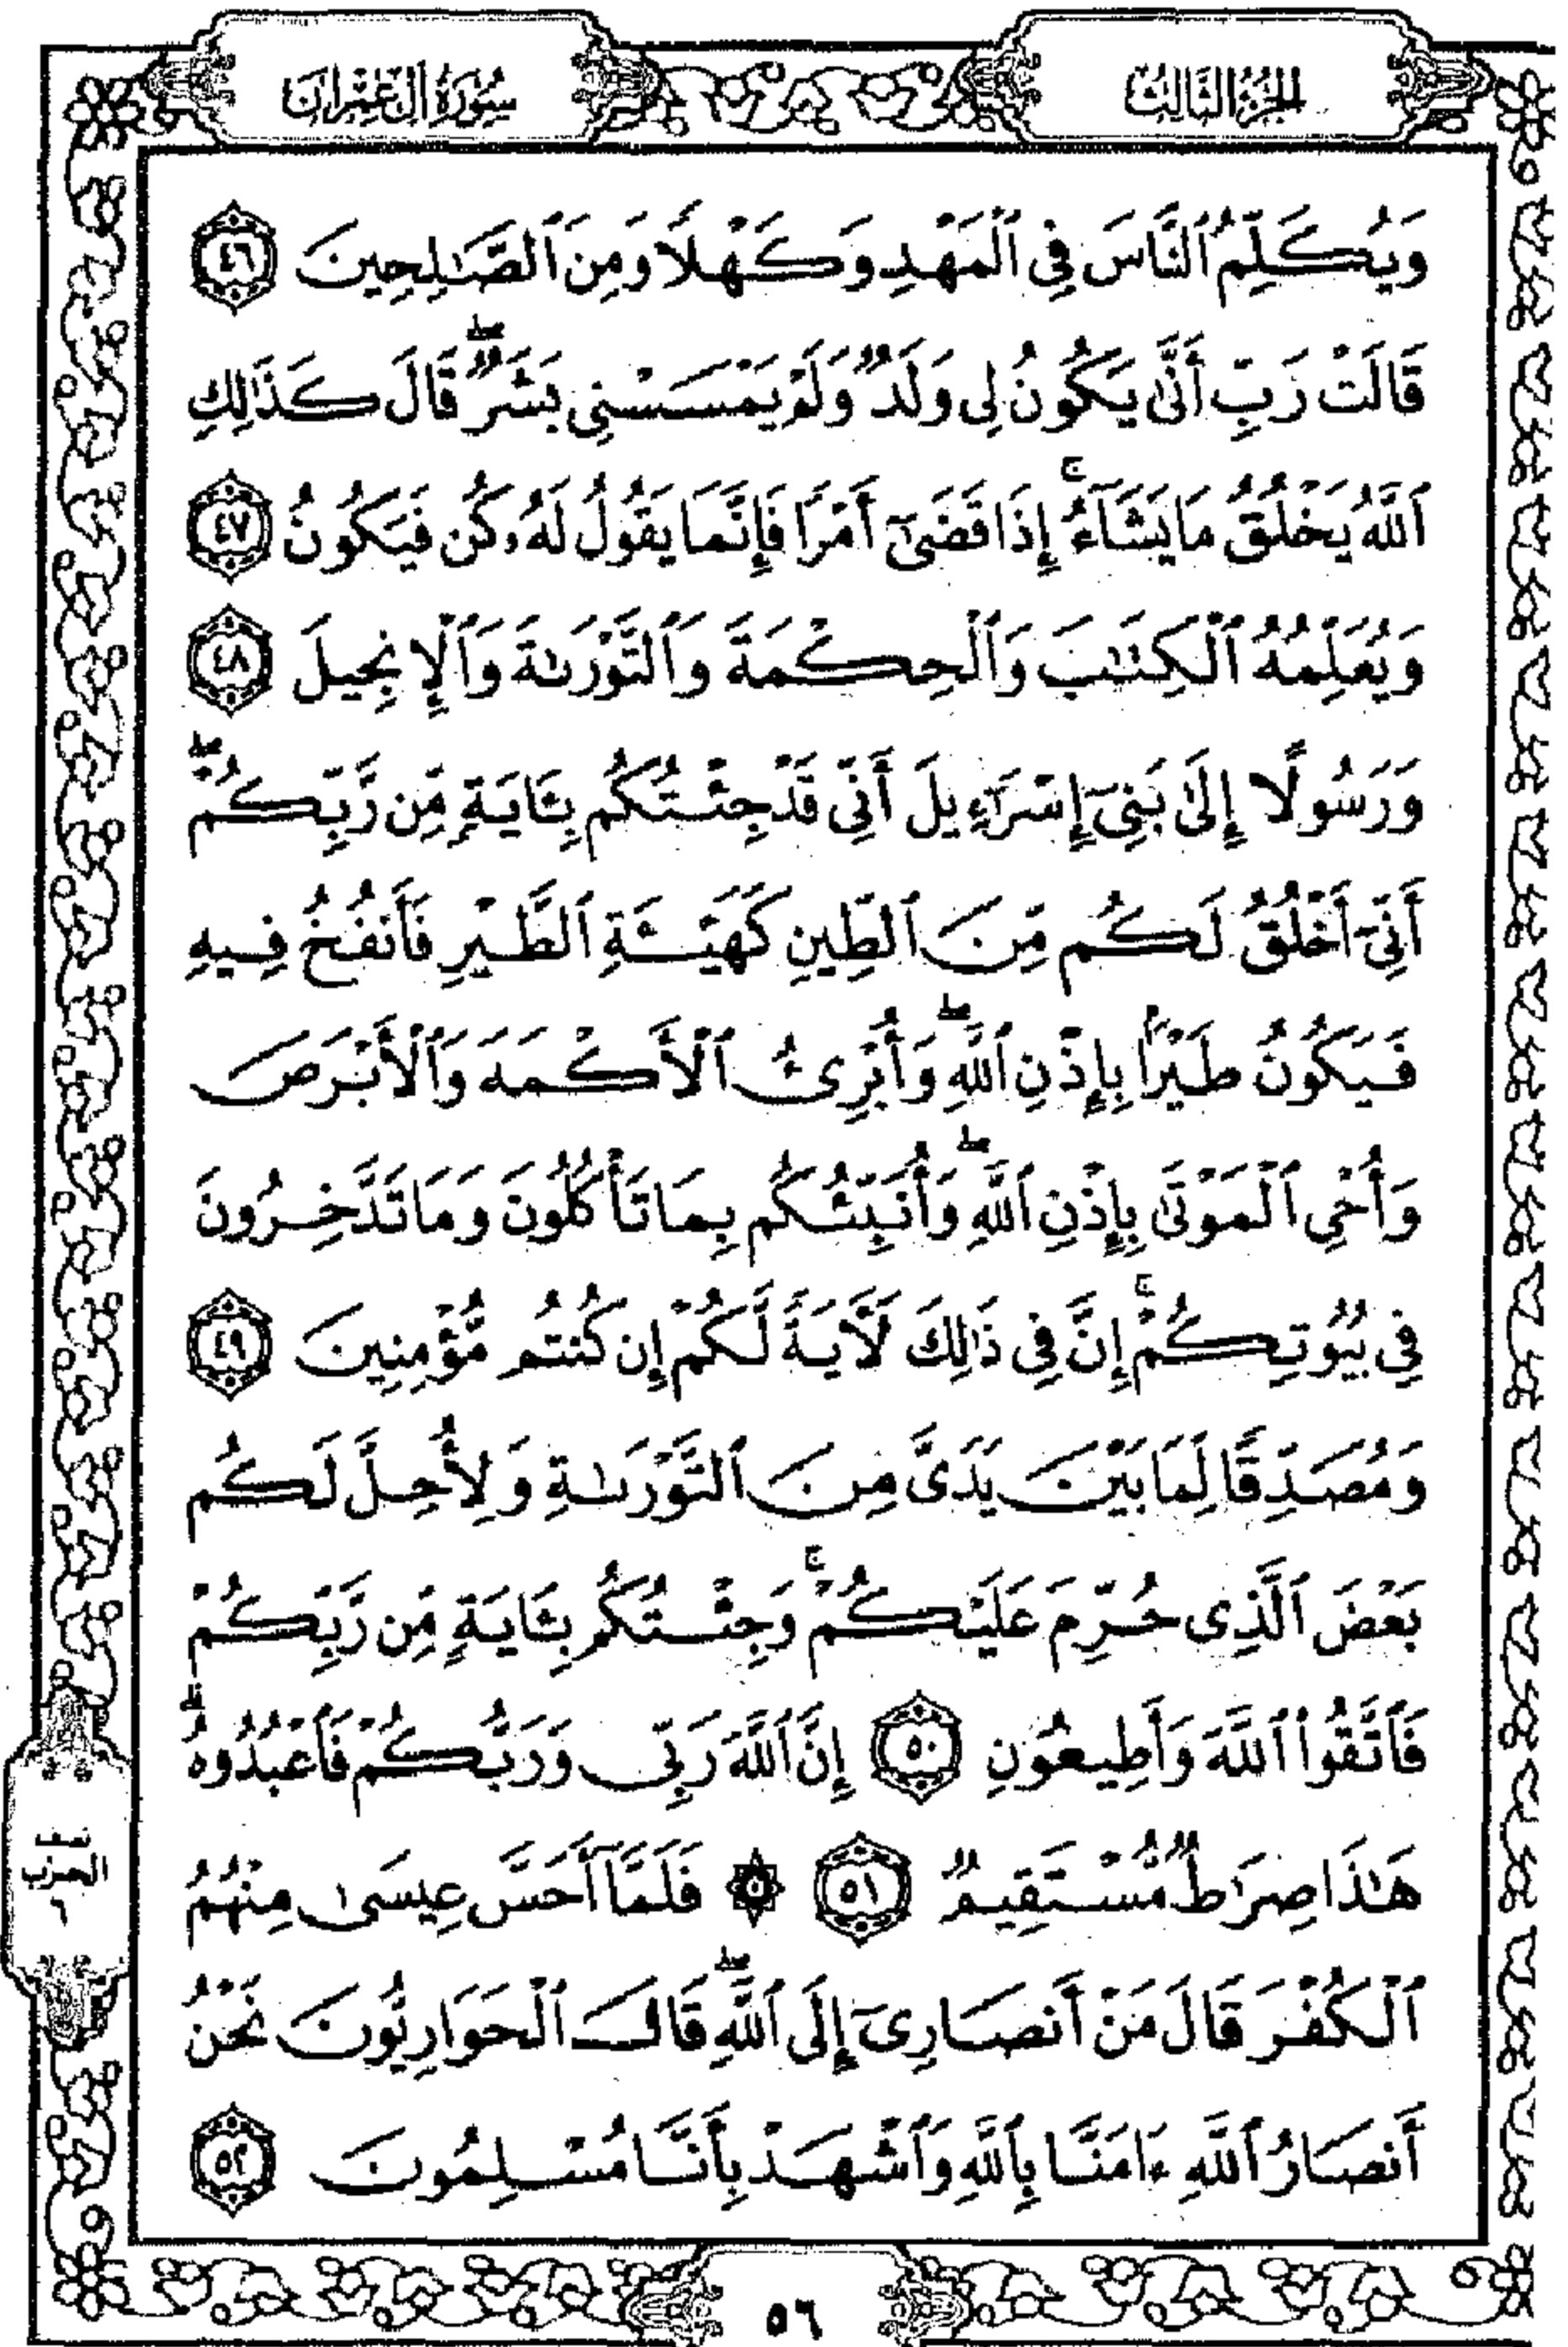 الجزء الثالث
سورة آل عمران
وَيُكَلِّمُ ٱلنَّاسَ فِى ٱلْمَهْدِ وَكَهْلًا وَمِنَ ٱلصَّـٰلِحِينَ ٤٦
قَالَتْ رَبِّ أَنَّىٰ يَكُونُ لِى وَلَدٌ وَلَمْ يَمْسَسْنِى بَشَرٌ ۖ قَالَ كَذَٰلِكِ
ٱللَّهُ يَخْلُقُ مَا يَشَآءُ ۚ إِذَا قَضَىٰٓ أَمْرًا فَإِنَّمَا يَقُولُ لَهُۥ كُن فَيَكُونُ ٤٧
وَيُعَلِّمُهُ ٱلْكِتَـٰبَ وَٱلْحِكْمَةَ وَٱلتَّوْرَىٰةَ وَٱلْإِنجِيلَ ٤٨
وَرَسُولًا إِلَىٰ بَنِىٓ إِسْرَٰٓءِيلَ أَنِّى قَدْ جِئْتُكُم بِـَٔايَةٍ مِّن رَّبِّكُمْ ۖ
أَنِّىٓ أَخْلُقُ لَكُم مِّنَ ٱلطِّينِ كَهَيْـَٔةِ ٱلطَّيْرِ فَأَنفُخُ فِيهِ
فَيَكُونُ طَيْرًۢا بِإِذْنِ ٱللَّهِ ۖ وَأُبْرِئُ ٱلْأَكْمَهَ وَٱلْأَبْرَصَ
وَأُحْىِ ٱلْمَوْتَىٰ بِإِذْنِ ٱللَّهِ ۖ وَأُنَبِّئُكُم بِمَا تَأْكُلُونَ وَمَا تَدَّخِرُونَ
فِى بُيُوتِكُمْ ۚ إِنَّ فِى ذَٰلِكَ لَـَٔايَةً لَّكُمْ إِن كُنتُم مُّؤْمِنِينَ ٤٩
وَمُصَدِّقًا لِّمَا بَيْنَ يَدَىَّ مِنَ ٱلتَّوْرَىٰةِ وَلِأُحِلَّ لَكُم
بَعْضَ ٱلَّذِى حُرِّمَ عَلَيْكُمْ ۚ وَجِئْتُكُم بِـَٔايَةٍ مِّن رَّبِّكُمْ
فَٱتَّقُوا۟ ٱللَّهَ وَأَطِيعُونِ ٥٠ إِنَّ ٱللَّهَ رَبِّى وَرَبُّكُمْ فَٱعْبُدُوهُ ۗ
هَـٰذَا صِرَٰطٌ مُّسْتَقِيمٌ ٥١ ۞ فَلَمَّآ أَحَسَّ عِيسَىٰ مِنْهُمُ
ٱلْكُفْرَ قَالَ مَنْ أَنصَارِىٓ إِلَى ٱللَّهِ ۖ قَالَ ٱلْحَوَارِيُّونَ نَحْنُ
أَنصَارُ ٱللَّهِ ءَامَنَّا بِٱللَّهِ وَٱشْهَدْ بِأَنَّا مُسْلِمُونَ ٥٢
نصف
الحزب
٦
٥٦